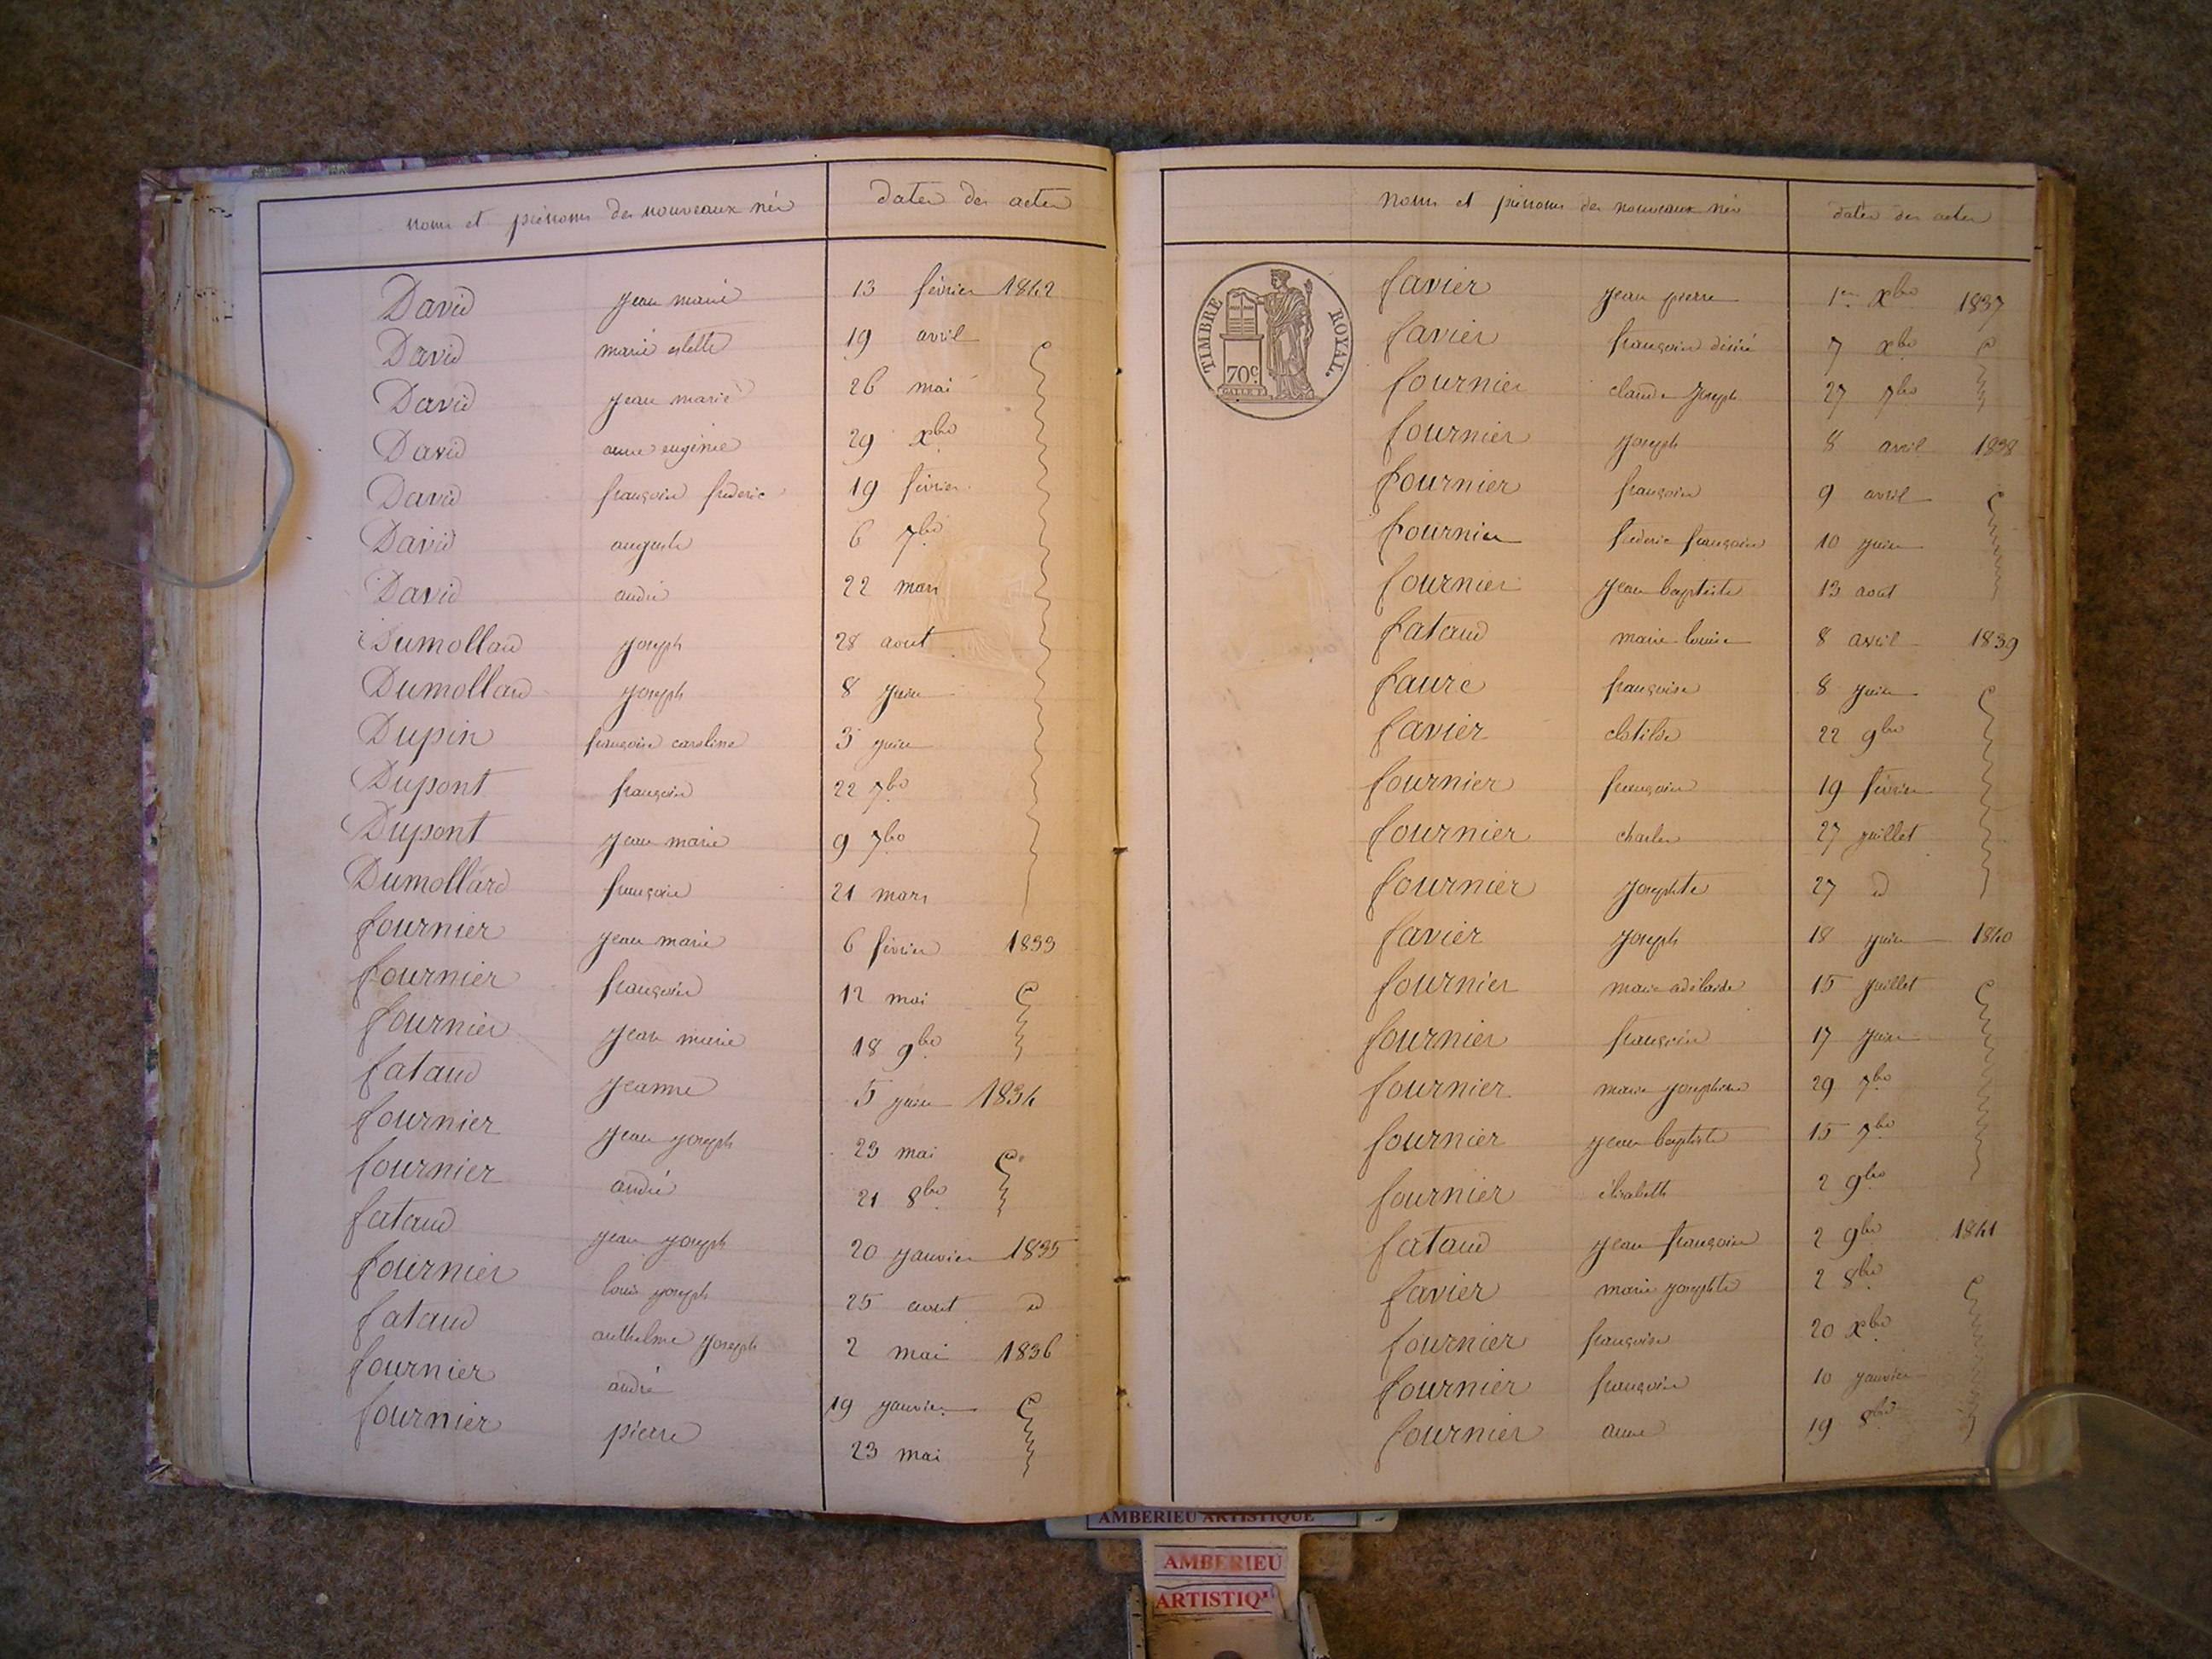 noms et prénoms des nouveaux nés dates des actes
David jean marie 13 février 1842
David marie estelle 19 avril
David jean marie 26 mai
David anne eugénie 29 Xbre
David françois frederic 19 février
David auguste 6 7bre
David andré 22 mars
Dumollard joseph 28 aout
Dumollard joseph 8 juin
Dupin françoise caroline 3 juin
Dupont françois 22 7bre
Dupont jean marie 9 7bre
Dumollard françoise 21 mars
fournier jean marie 6 février 1833
fournier françois 12 mai
fournier jean marie 18 9bre
fataud jeanne 5 juin 1834
fournier jean joseph 23 mai
fournier andré 21 8bre
fataud jean joseph 20 janvier 1835
fournier louis joseph 25 aout d
fataud anthelme joseph 2 mai 1836
fournier andré 19 janvier
fournier pierre 23 mai
noms et prénoms des nouveaux nés dates des actes
TIMBRE ROYAL.
70c.
favier jean pierre 1er Xbre 1837
favier françois désiré 7 Xbre
fournier claude joseph 27 7bre
fournier joseph 8 avril 1838
fournier françois 9 avril
fournier frederic françois 10 juin
fournier jean baptiste 13 aout
fataud marie louise 8 avril 1839
faure françoise 8 juin
favier clotilde 22 9bre
fournier françois 19 février
fournier charles 27 juillet
fournier josephte 27 d
favier joseph 18 juin 1840
fournier marie adélaïde 15 juillet
fournier françois 17 juin
fournier marie josephine 29 7bre
fournier jean baptiste 15 7bre
fournier élisabeth 2 9bre
fataud jean françois 2 9bre 1841
favier marie josephte 2 8bre
fournier françoise 20 Xbre
fournier françois 10 janvier
fournier anne 19 8bre
AMBERIEU ARTISTIQUE
AMBERIEU
ARTISTIQU